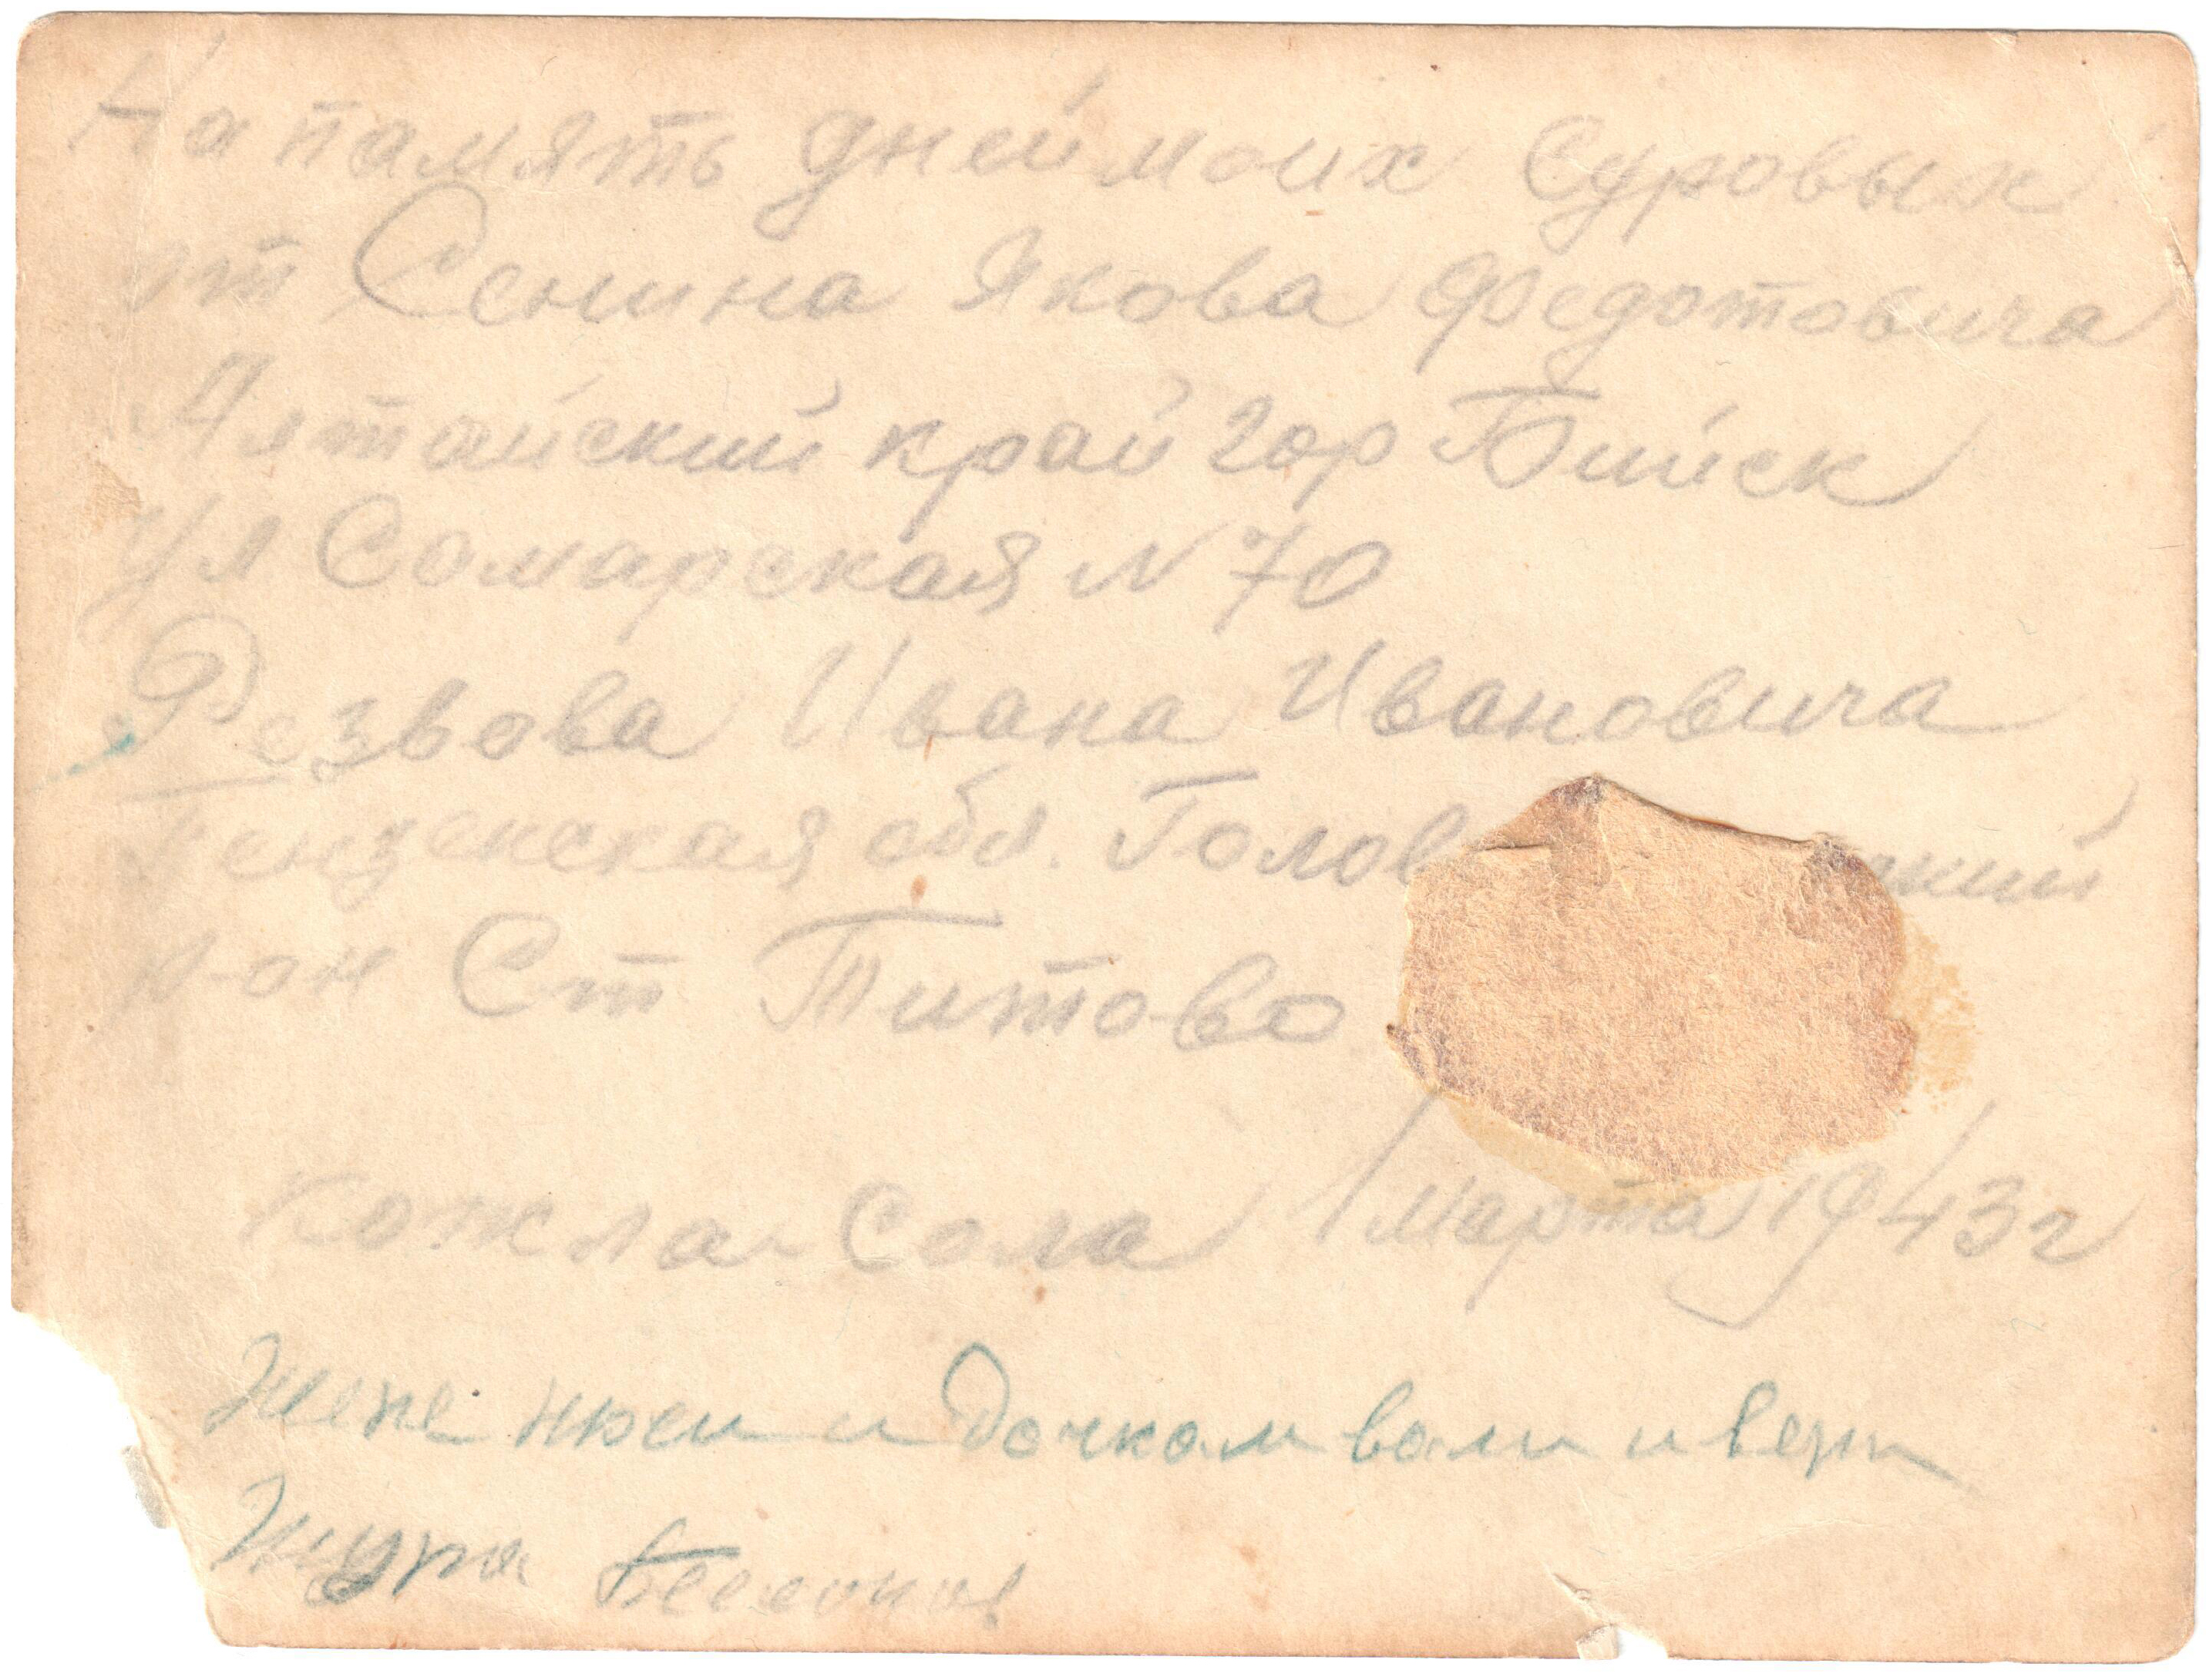 На память дней моих суровых
от Сенина Якова Федотовича
Алтайский край гор Бийск
ул Самарская N 70
Резвова Ивана Ивановича
Пензенская обл. Голов кий
р-он Ст Титово
Кожла-Сола 1 марта 1943 г
Жене нюси и Дочкам вали и вери